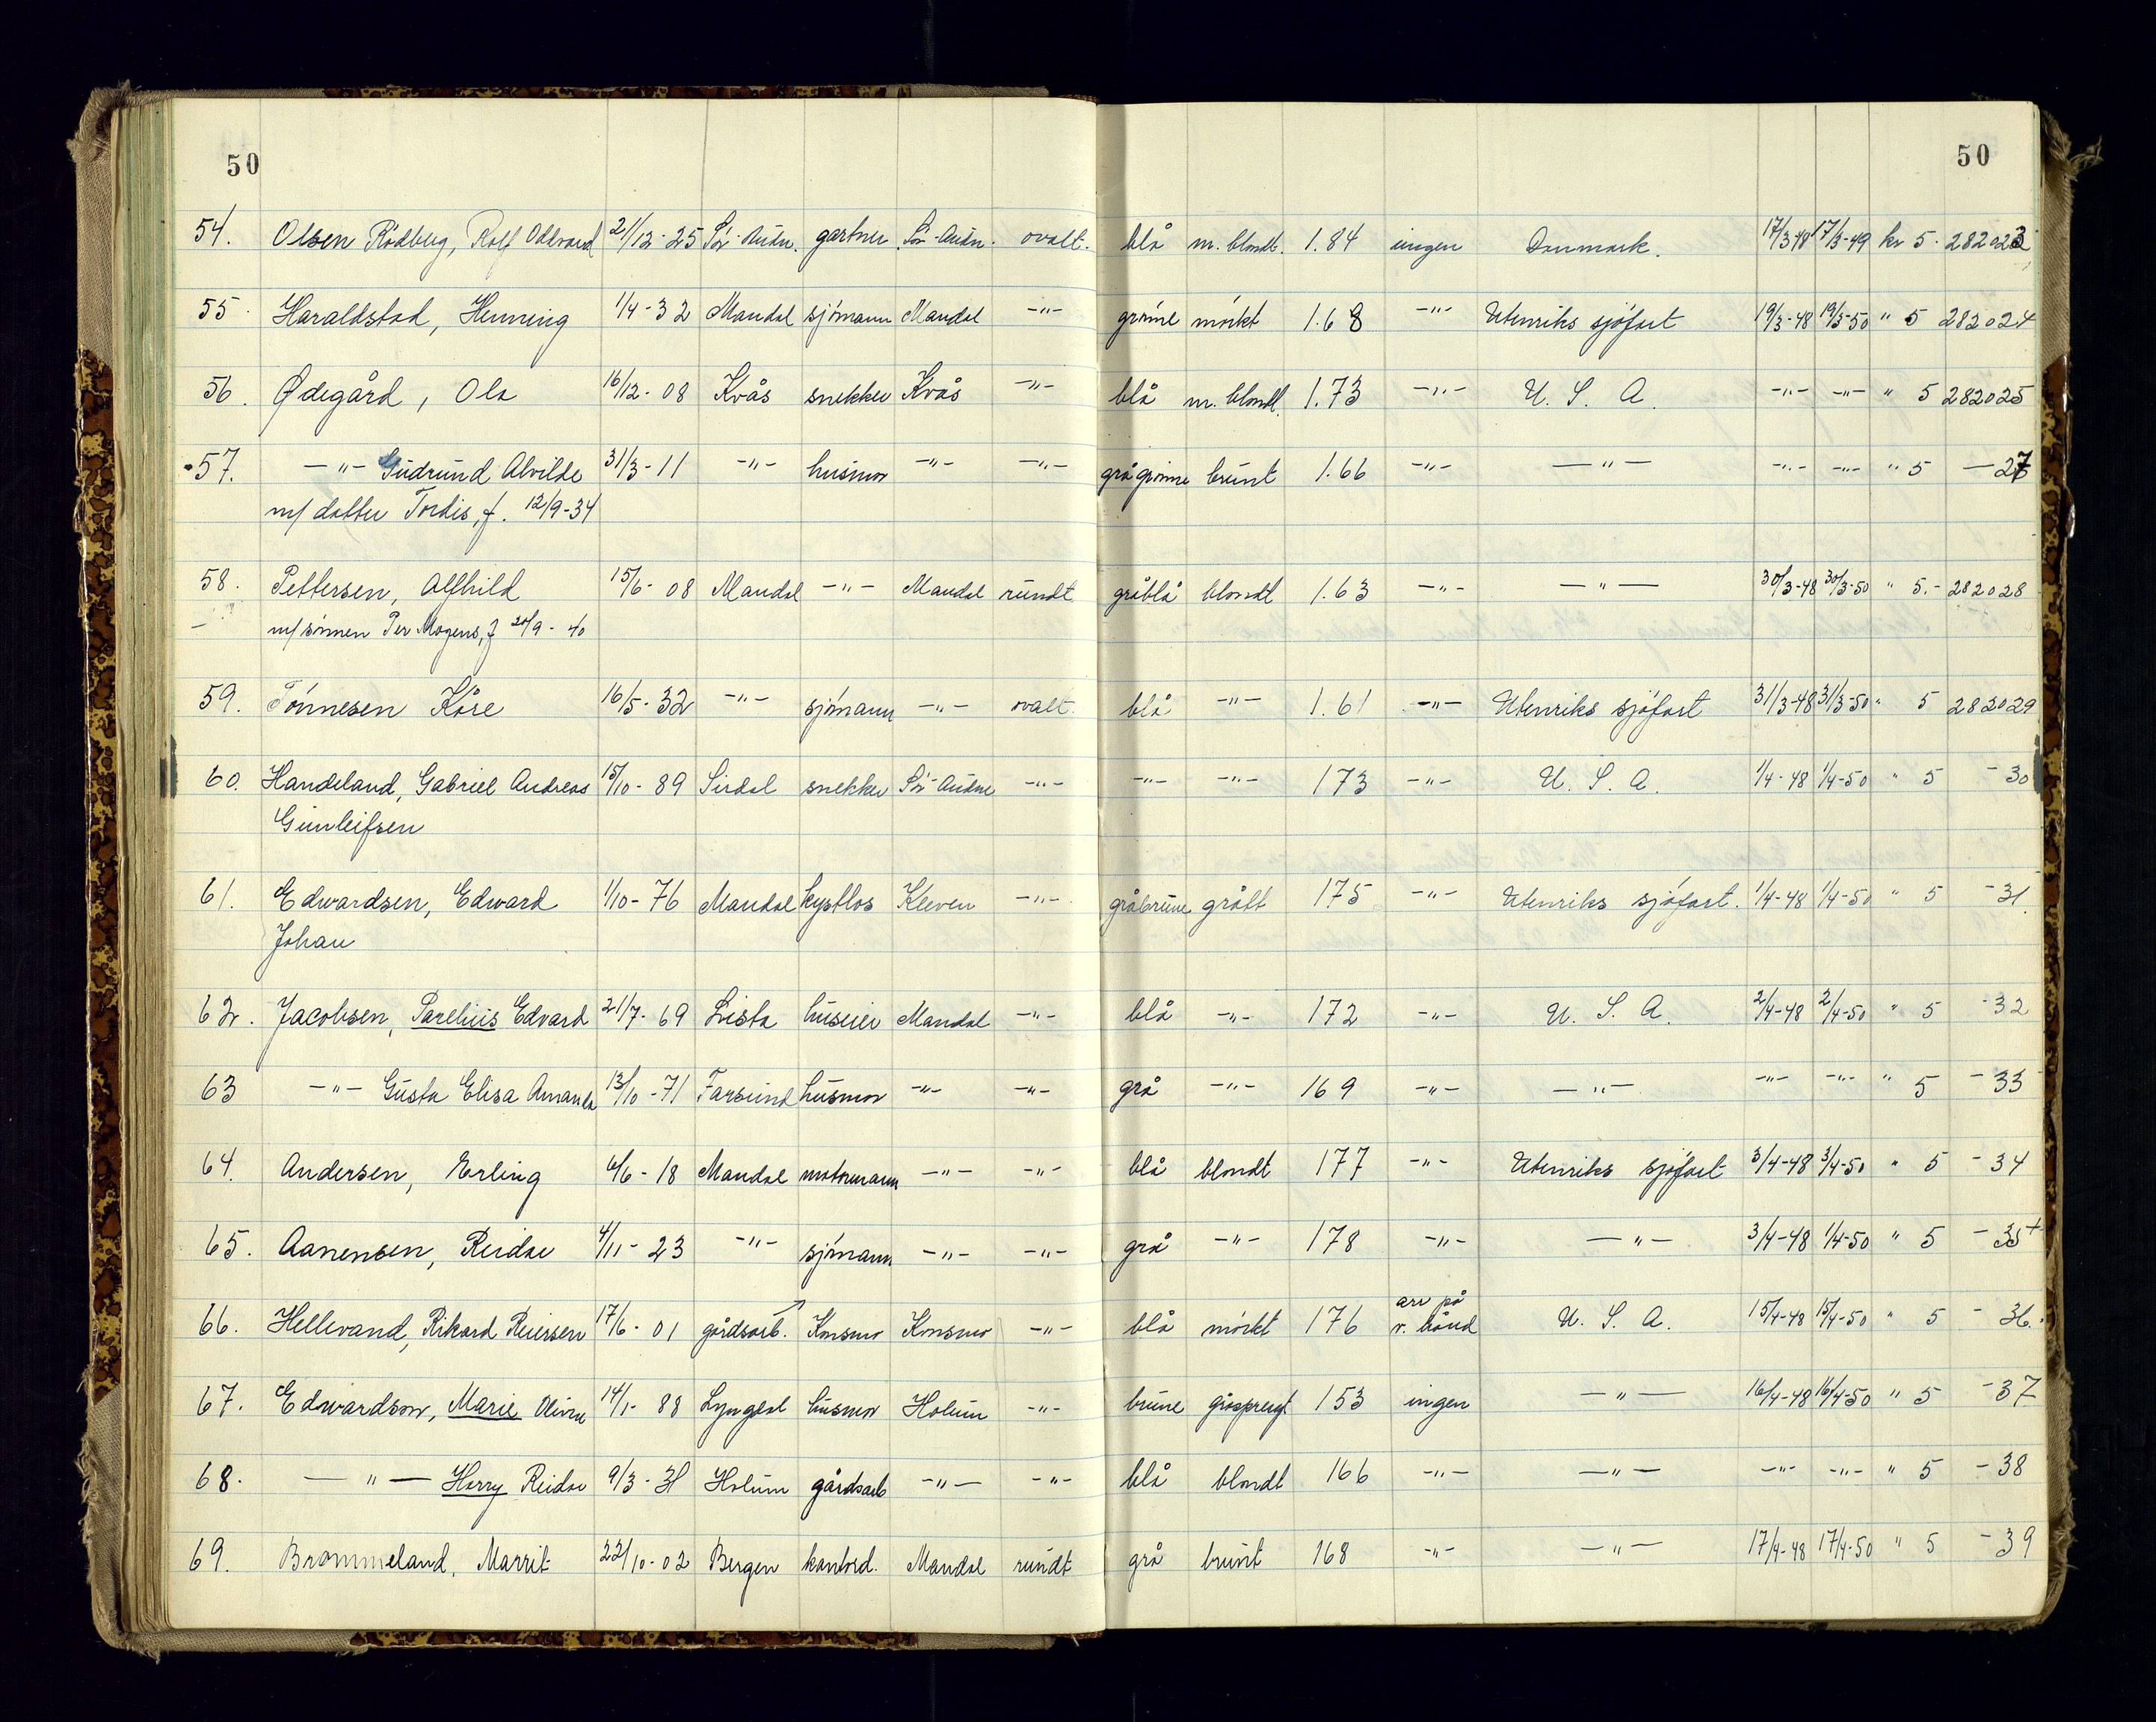 50 50
54. Olsen Rødberg, Rolf Oddvard 21/12-25 Sör-Audn. gartner Sör-Audn. ovalt. blå m. blondt. 1.84 ingen Danmark. 17/3-48 17/3-49 kr 5.- 282023
55. Haraldstad, Henning 1/4-32 Mandal sjömann Mandal -"- grönne mörkt 1.68 -"- Utenriks sjöfart 19/3-48 19/3-50 " 5 282024
56. Ødegård, Ola 16/12-08 Kvås snekker Kvås -"- blå m. blondt. 1.73 -"- U. S. A. -"- -"- " 5 282025
57. -"- Gudrund Alvilde 31/3-11 -"- husmor -"- -"- grågrönne brunt 1.66 -"- -"- -"- -"- " 5 -27
m/ datter Tordis, f. 12/9-34
58. Pettersen, Alfhild 15/6-08 Mandal -"- Mandal rundt gråblå blondt 1.63 -"- -"- 30/3-48 30/3-50 " 5.- 282028
m/ sönnen Per Mogens, f 20/9-40
59. Tönnesen Kåre 16/5-32 -"- sjömann -"- ovalt. blå -"- 1.61 -"- Utenriks sjöfart 31/3-48 31/3-50 " 5 282029
60. Handeland, Gabriel Andreas 15/10-89 Sirdal snekker Sör-Audne -"- -"- -"- 173 -"- U. S. A. 1/4-48 1/4-50 " 5 -30
Gunleifsen
61. Edwardsen, Edward 1/10-76 Mandal kystlos Kleven -"- gråbrune grått 175 -"- Utenriks sjöfart. 1/4-48 1/4-50 " 5 -31.
Johan
62. Jacobsen, Parelius Edvard 21/7-69 Lista huseier Mandal -"- blå -"- 172 -"- U. S. A. 2/4-48 2/4-50 " 5 -32
63 -"- Gusta Elisa Amanda 13/10-71 Farsund husmor -"- -"- grå -"- 169 -"- -"- -"- -"- " 5 -33
64. Andersen, Erling 6/6-18 Mandal motormann -"- -"- blå blondt 177 -"- Utenriks sjöfart 3/4-48 3/4-50 " 5 -34
65. Aanensen, Reidar 4/11-23 -"- sjömann -"- -"- grå -"- 178 -"- -"- 3/4-48 1/4-50 " 5 -35+
66. Hellevand, Rikard Reiersen 17/6-01 gårdsarb. Konsmo Konsmo -"- blå mörkt 176 arr på v. hånd U. S. A. 15/4-48 15/4-50 " 5 -36.
67. Edwardson, Marie Olivine 14/1-88 Lyngdal husmor Holum -"- brune gråsprengt 153 ingen -"- 16/4-48 16/4-50 " 5 -37
68. -"- Harry Reidar 9/3-31 Holum gårdsarb -"- -"- blå blondt 166 -"- -"- -"- -"- " 5 -38
69. Brommeland, Marrit 22/10-02 Bergen kontord. Mandal rundt grå brunt 168 -"- -"- 17/4-48 17/4-50 " 5 -39